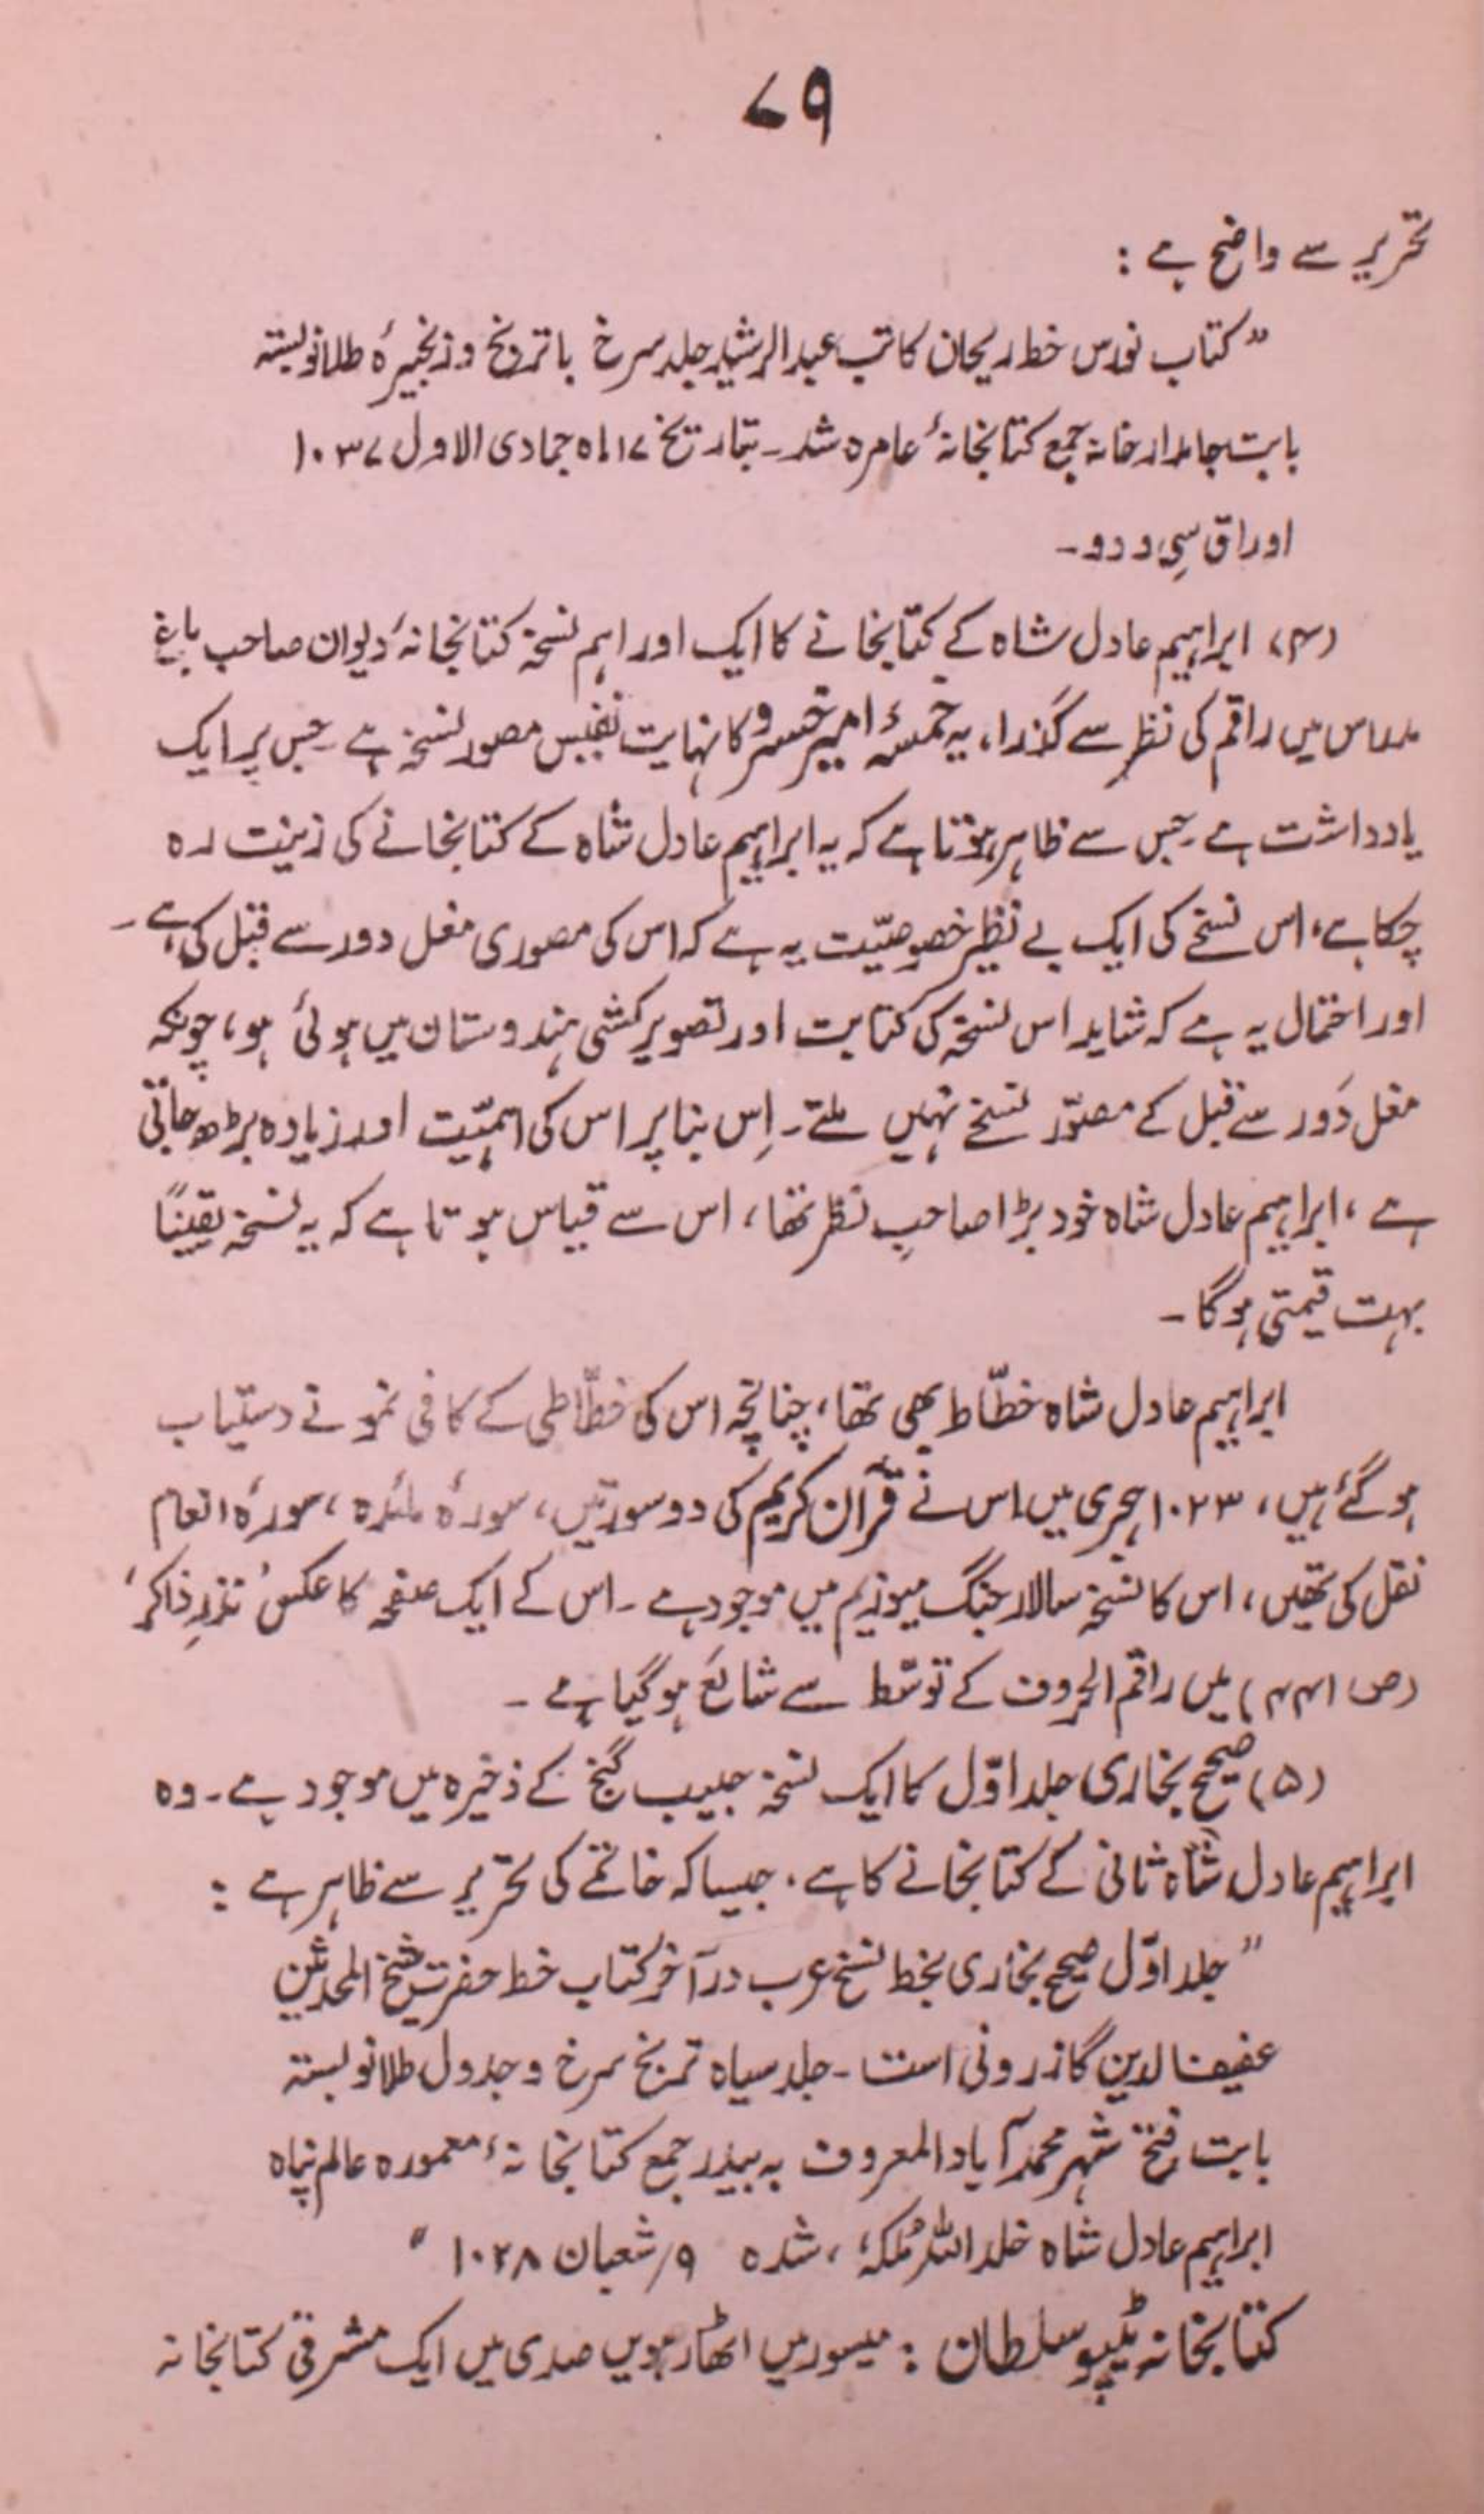 ۷۹
تحریر سے واضح ہے :
”کتاب نورس خط ریحان کاتب عبدالرشید جلد سرخ باترنج و زنجیرۂ طلانو بستہ
بابت جامدارخانہ جمع کتابخانۂ عامرہ شد ۔ بتاریخ ۱۷ ماہ جمادی الاول ۱۰۳۷
اوراق سِی و دو ۔
(۴) ابراہیم عادل شاہ کے کتابخانے کا ایک اور اہم نسخہ کتابخانۂ دیوان صاحب باغ
مدراس میں راقم کی نظر سے گذرا، یہ خمسۂ امیر خسرو کا نہایت نفیس مصور نسخہ ہے جس پر ایک
یادداشت ہے جس سے ظاہر ہوتا ہے کہ یہ ابراہیم عادل شاہ کے کتابخانے کی زینت رہ
چکا ہے، اس نسخے کی ایک بے نظیر خصوصیّت یہ ہے کہ اس کی مصوری مغل دور سے قبل کی ہے ۔
اور احتمال یہ ہے کہ شاید اس نسخہ کی کتابت اور تصویر کشی ہندوستان میں ہوئی ہو، چونکہ
مغل دَور سے قبل کے مصوّر نسخے نہیں ملتے ۔ اِس بنا پر اس کی اہمیّت اور زیادہ بڑھ جاتی
ہے ، ابراہیم عادل شاہ خود بڑا صاحبِ نظر تھا ، اس سے قیاس ہوتا ہے کہ یہ نسخہ یقیناً
بہت قیمتی ہوگا ۔
ابراہیم عادل شاہ خطّاط بھی تھا ، چنانچہ اس کی خطّاطی کے کافی نمونے دستیاب
ہو گئے ہیں ، ۱۰۲۳ ہجری میں اس نے قرآن کریم کی دو سورتیں ، سورۂ مائدہ ، سورۂ انعام
نقل کی تھیں ، اس کا نسخہ سالار جنگ میوزیم میں موجود ہے ۔ اس کے ایک صفحہ کا عکس ’نذرِ ذاکر‘
(ص ۴۴۱) میں راقم الحروف کے توسّط سے شائع ہو گیا ہے ۔
(۵) صحیح بخاری جلد اوّل کا ایک نسخہ حبیب گنج کے ذخیرہ میں موجود ہے ۔ وہ
ابراہیم عادل شاہ ثانی کے کتابخانے کا ہے . جیسا کہ خاتمے کی تحریر سے ظاہر ہے :
”جلد اوّل صحیح بخاری بخط نسخ عرب در آخر کتاب خط حضرت شیخ المحدثین
عفیف الدین گازرونی است ۔ جلد سیاہ ترنج سرخ و جدول طلانو بستہ
بابت فتح شہر محمدآباد المعروف بہ بیدر جمع کتابخانۂ معمورہ عالم پناہ
ابراہیم عادل شاہ خلد اللہ مُلکہٗ ، شدہ ۹؍ شعبان ۱۰۲۸ “
کتابخانہ ٹیپو سلطان : میسور میں اٹھارہویں صدی میں ایک مشرقی کتابخانہ